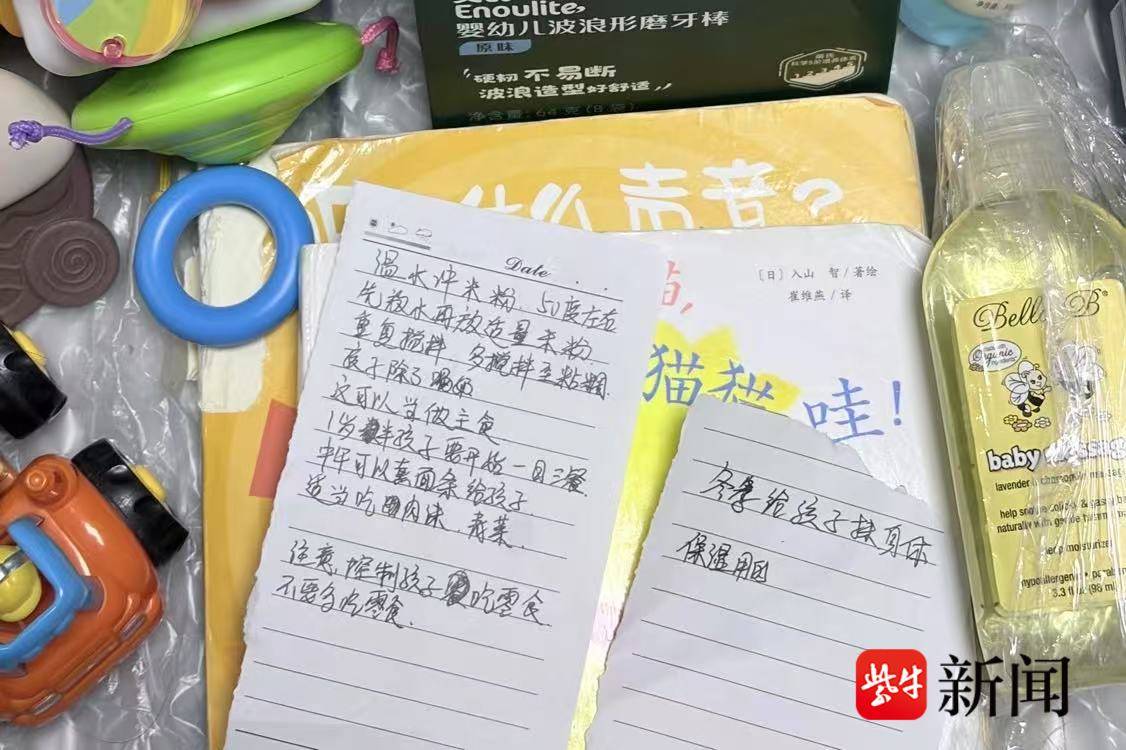 Enoulite
婴幼儿波浪形磨牙棒
原味
硬韧不易断
波浪造型好舒适
净含量: 64克(8袋)
什么声音?
[日] 入山 智/著绘
崔维燕/译
猫猫 哇!
Date
温水冲米粉, 50度左右
先放水再放适量米粉
重复搅拌, 多搅拌至粘稠
孩子除了喝奶
这可以当做主食
1岁半孩子要开始一日三餐
中午可以煮面条给孩子
适当吃肉沫、青菜.
注意, 控制孩子吃零食
不要多吃零食.
冬季给孩子抹身体
保湿用的
Bella B
Organic
baby
lavender
naturally with
hypoallergenic
紫牛新闻